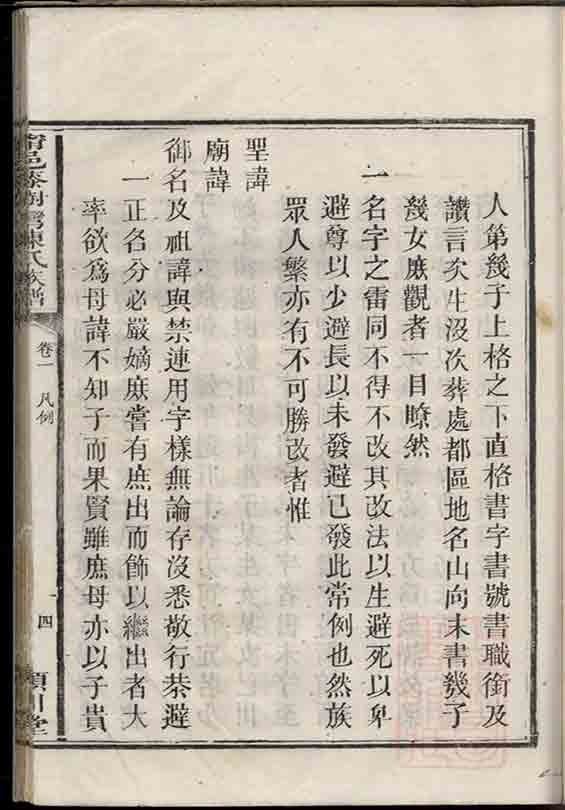 人第幾子上格之下直格書字書號書職銜及
讚言次生沒次葬處都區地名山向末書幾子
幾女庶觀者一目瞭然
一名字之雷同不得不改其改法以生避死以卑
避尊以少避長以未發避已發此常例也然族
眾人繁亦有不可勝改者惟
聖諱
廟諱
御名及祖諱與禁連用字樣無論存沒悉敬行恭避
一正名分必嚴嫡庶嘗有庶出而飾以繼出者大
率欲爲母諱不知子而果賢雖庶母亦以子貴
陳氏族譜
卷一 凡例
四
川堂